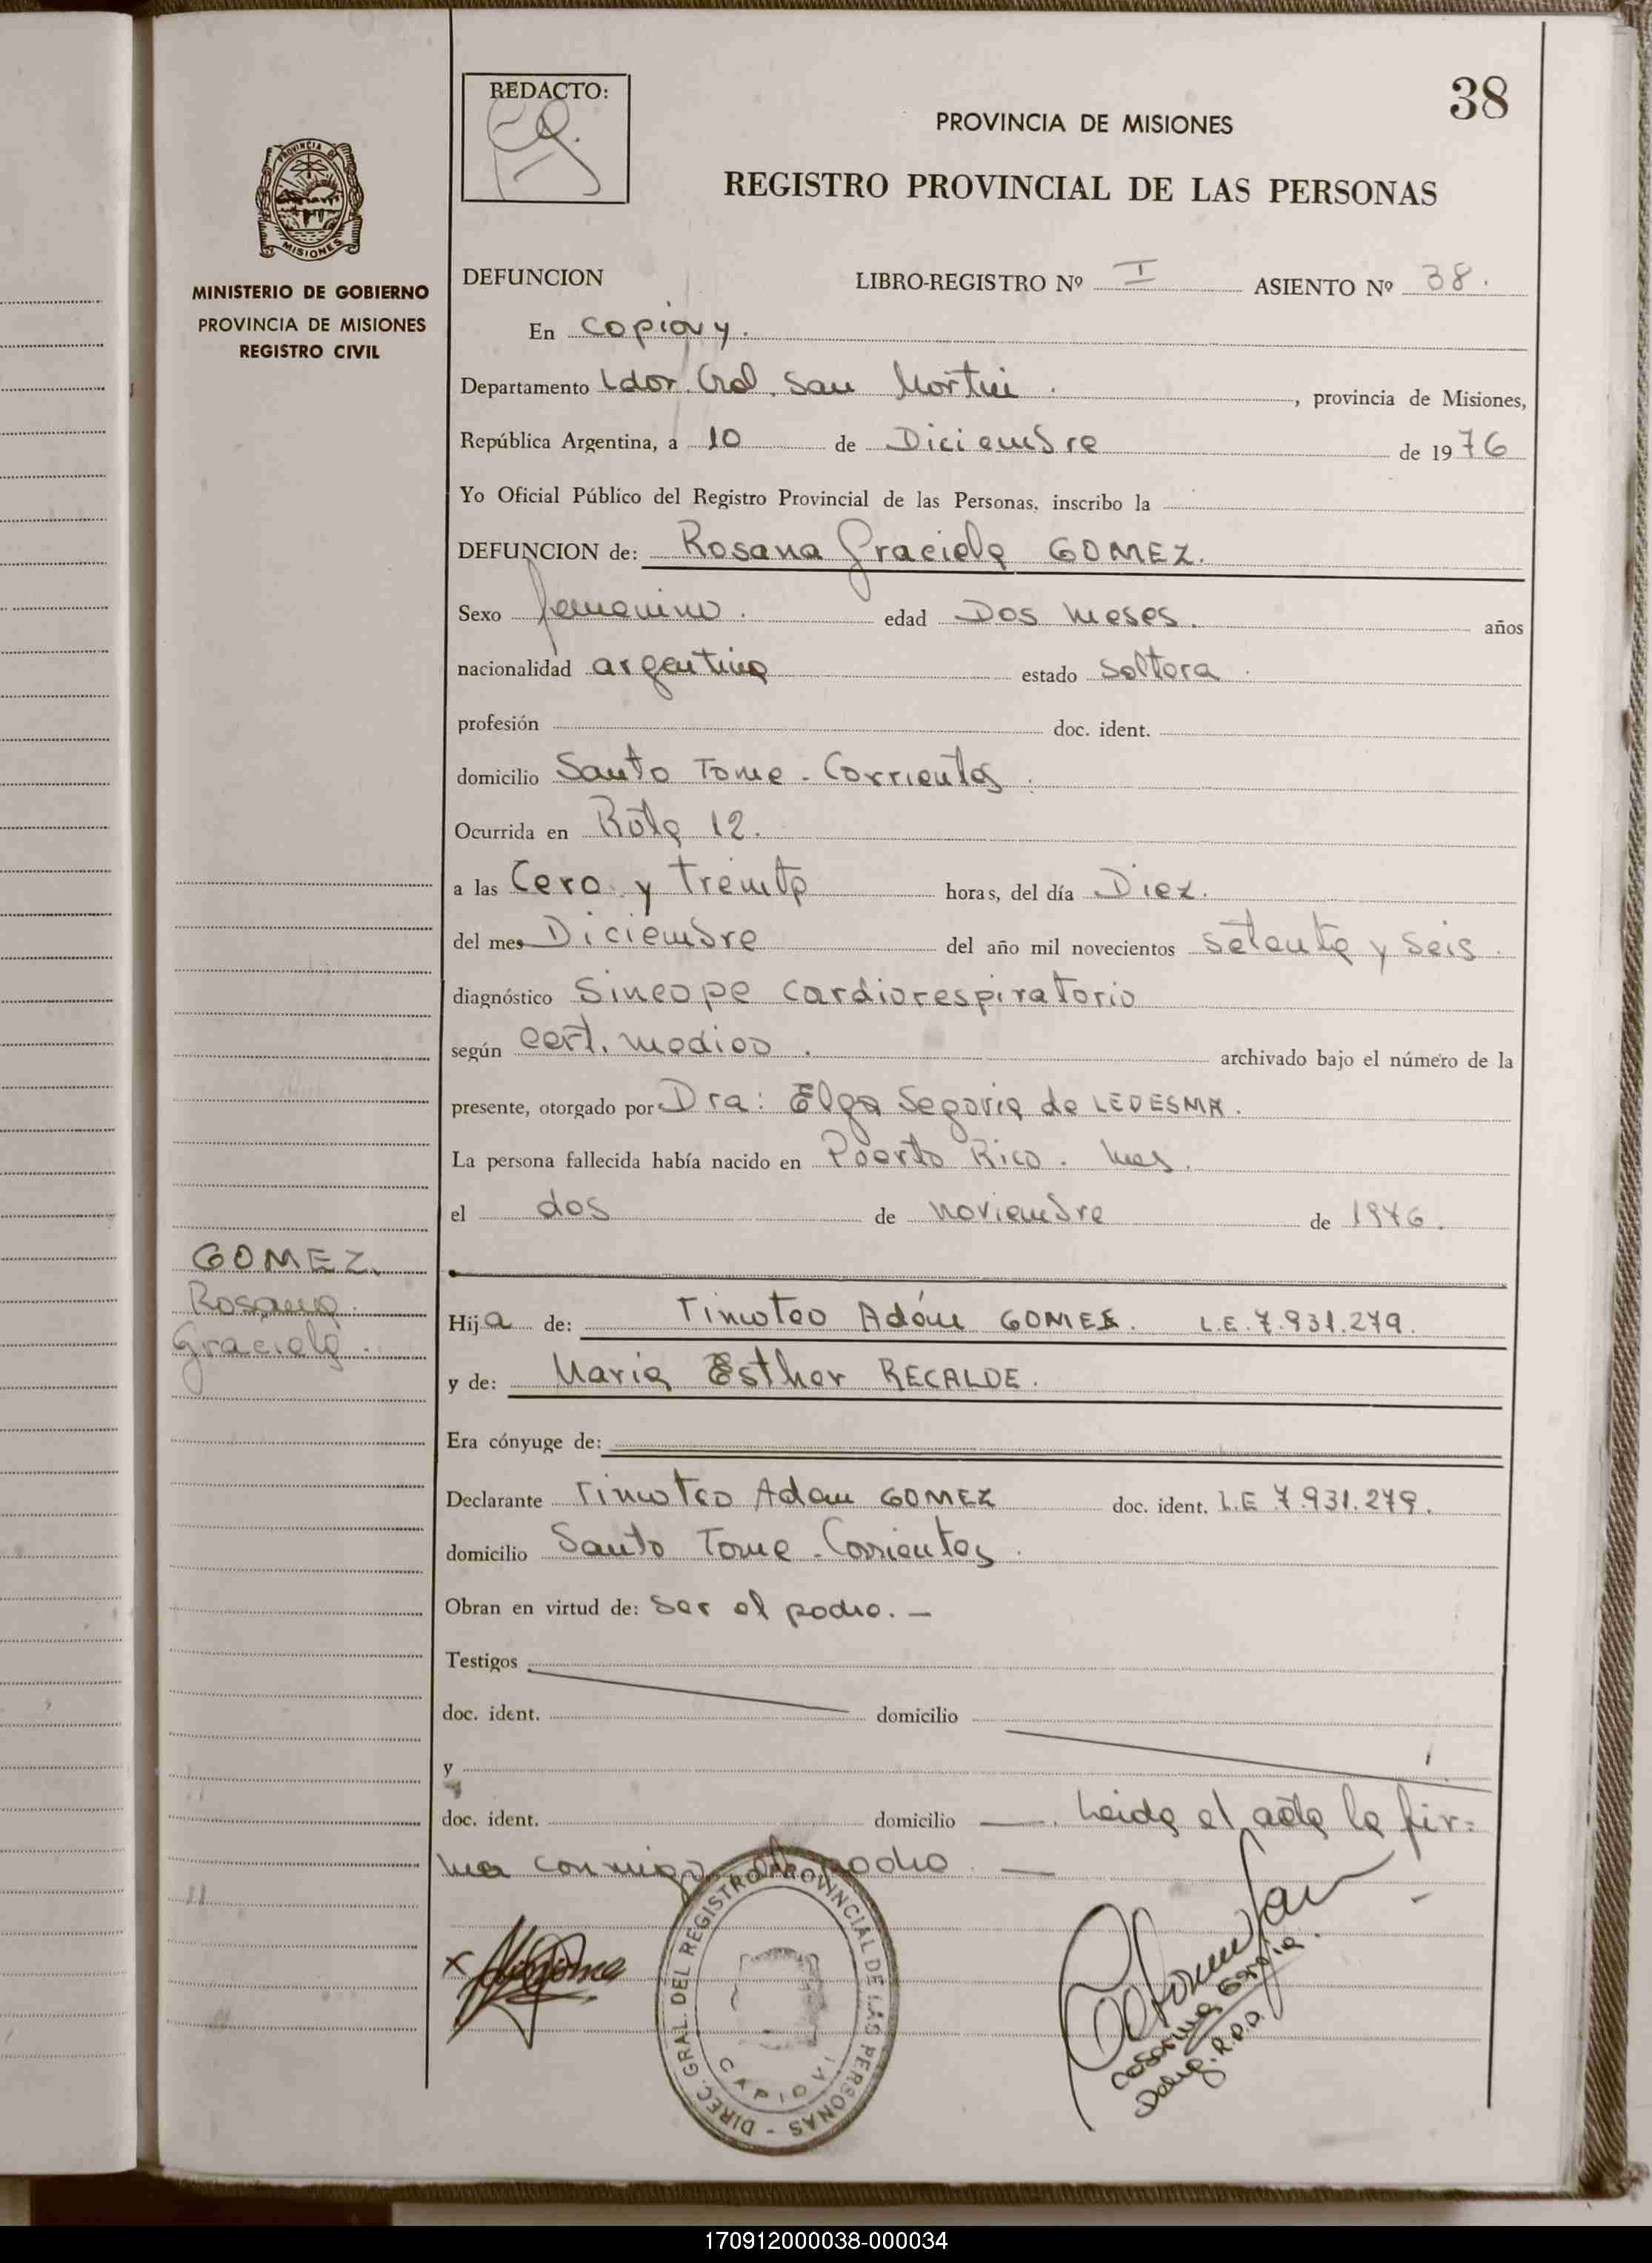 REDACTO:
38
PROVINCIA DE MISIONES
REGISTRO PROVINCIAL DE LAS PERSONAS
PROVINCIA DE
MISIONES
MINISTERIO DE GOBIERNO
PROVINCIA DE MISIONES
REGISTRO CIVIL
DEFUNCION LIBRO-REGISTRO Nº I ASIENTO Nº 38.
En Capiovy.
Departamento Ldor. Gral. San Martin. , provincia de Misiones,
República Argentina, a 10 de Diciembre de 1976
Yo Oficial Público del Registro Provincial de las Personas, inscribo la
DEFUNCION de: Rosana Graciela GOMEZ.
Sexo femenino. edad Dos meses. años
nacionalidad argentina estado Soltera.
profesión doc. ident.
domicilio Santo Tome - Corrientes.
Ocurrida en Ruta 12.
a las Cero y treinta horas, del día Diez.
del mes Diciembre del año mil novecientos setenta y seis.
diagnóstico Sincope cardiorespiratorio
según cert. medico. archivado bajo el número de la
presente, otorgado por Dra: Elga Segovia de LEDESMA.
La persona fallecida había nacido en Puerto Rico. Mes.
el dos de noviembre de 1976.
GOMEZ.
Rosana
Graciela.
Hija de: Timoteo Adán GOMEZ. L.E. 7.931.279.
y de: Maria Esther RECALDE.
Era cónyuge de:
Declarante Timoteo Adan GOMEZ doc. ident. L.E 7.931.279.
domicilio Santo Tome - Corrientes.
Obran en virtud de: Ser el padre. —
Testigos
doc. ident. domicilio
y
doc. ident. domicilio —. Leida el acta la fir=
ma conmigo el padre. —
DIREC. GRAL. DEL REGISTRO PROVINCIAL DE LAS PERSONAS -
CAPIOVI
Deleg. R.P.P.
170912000038-000034